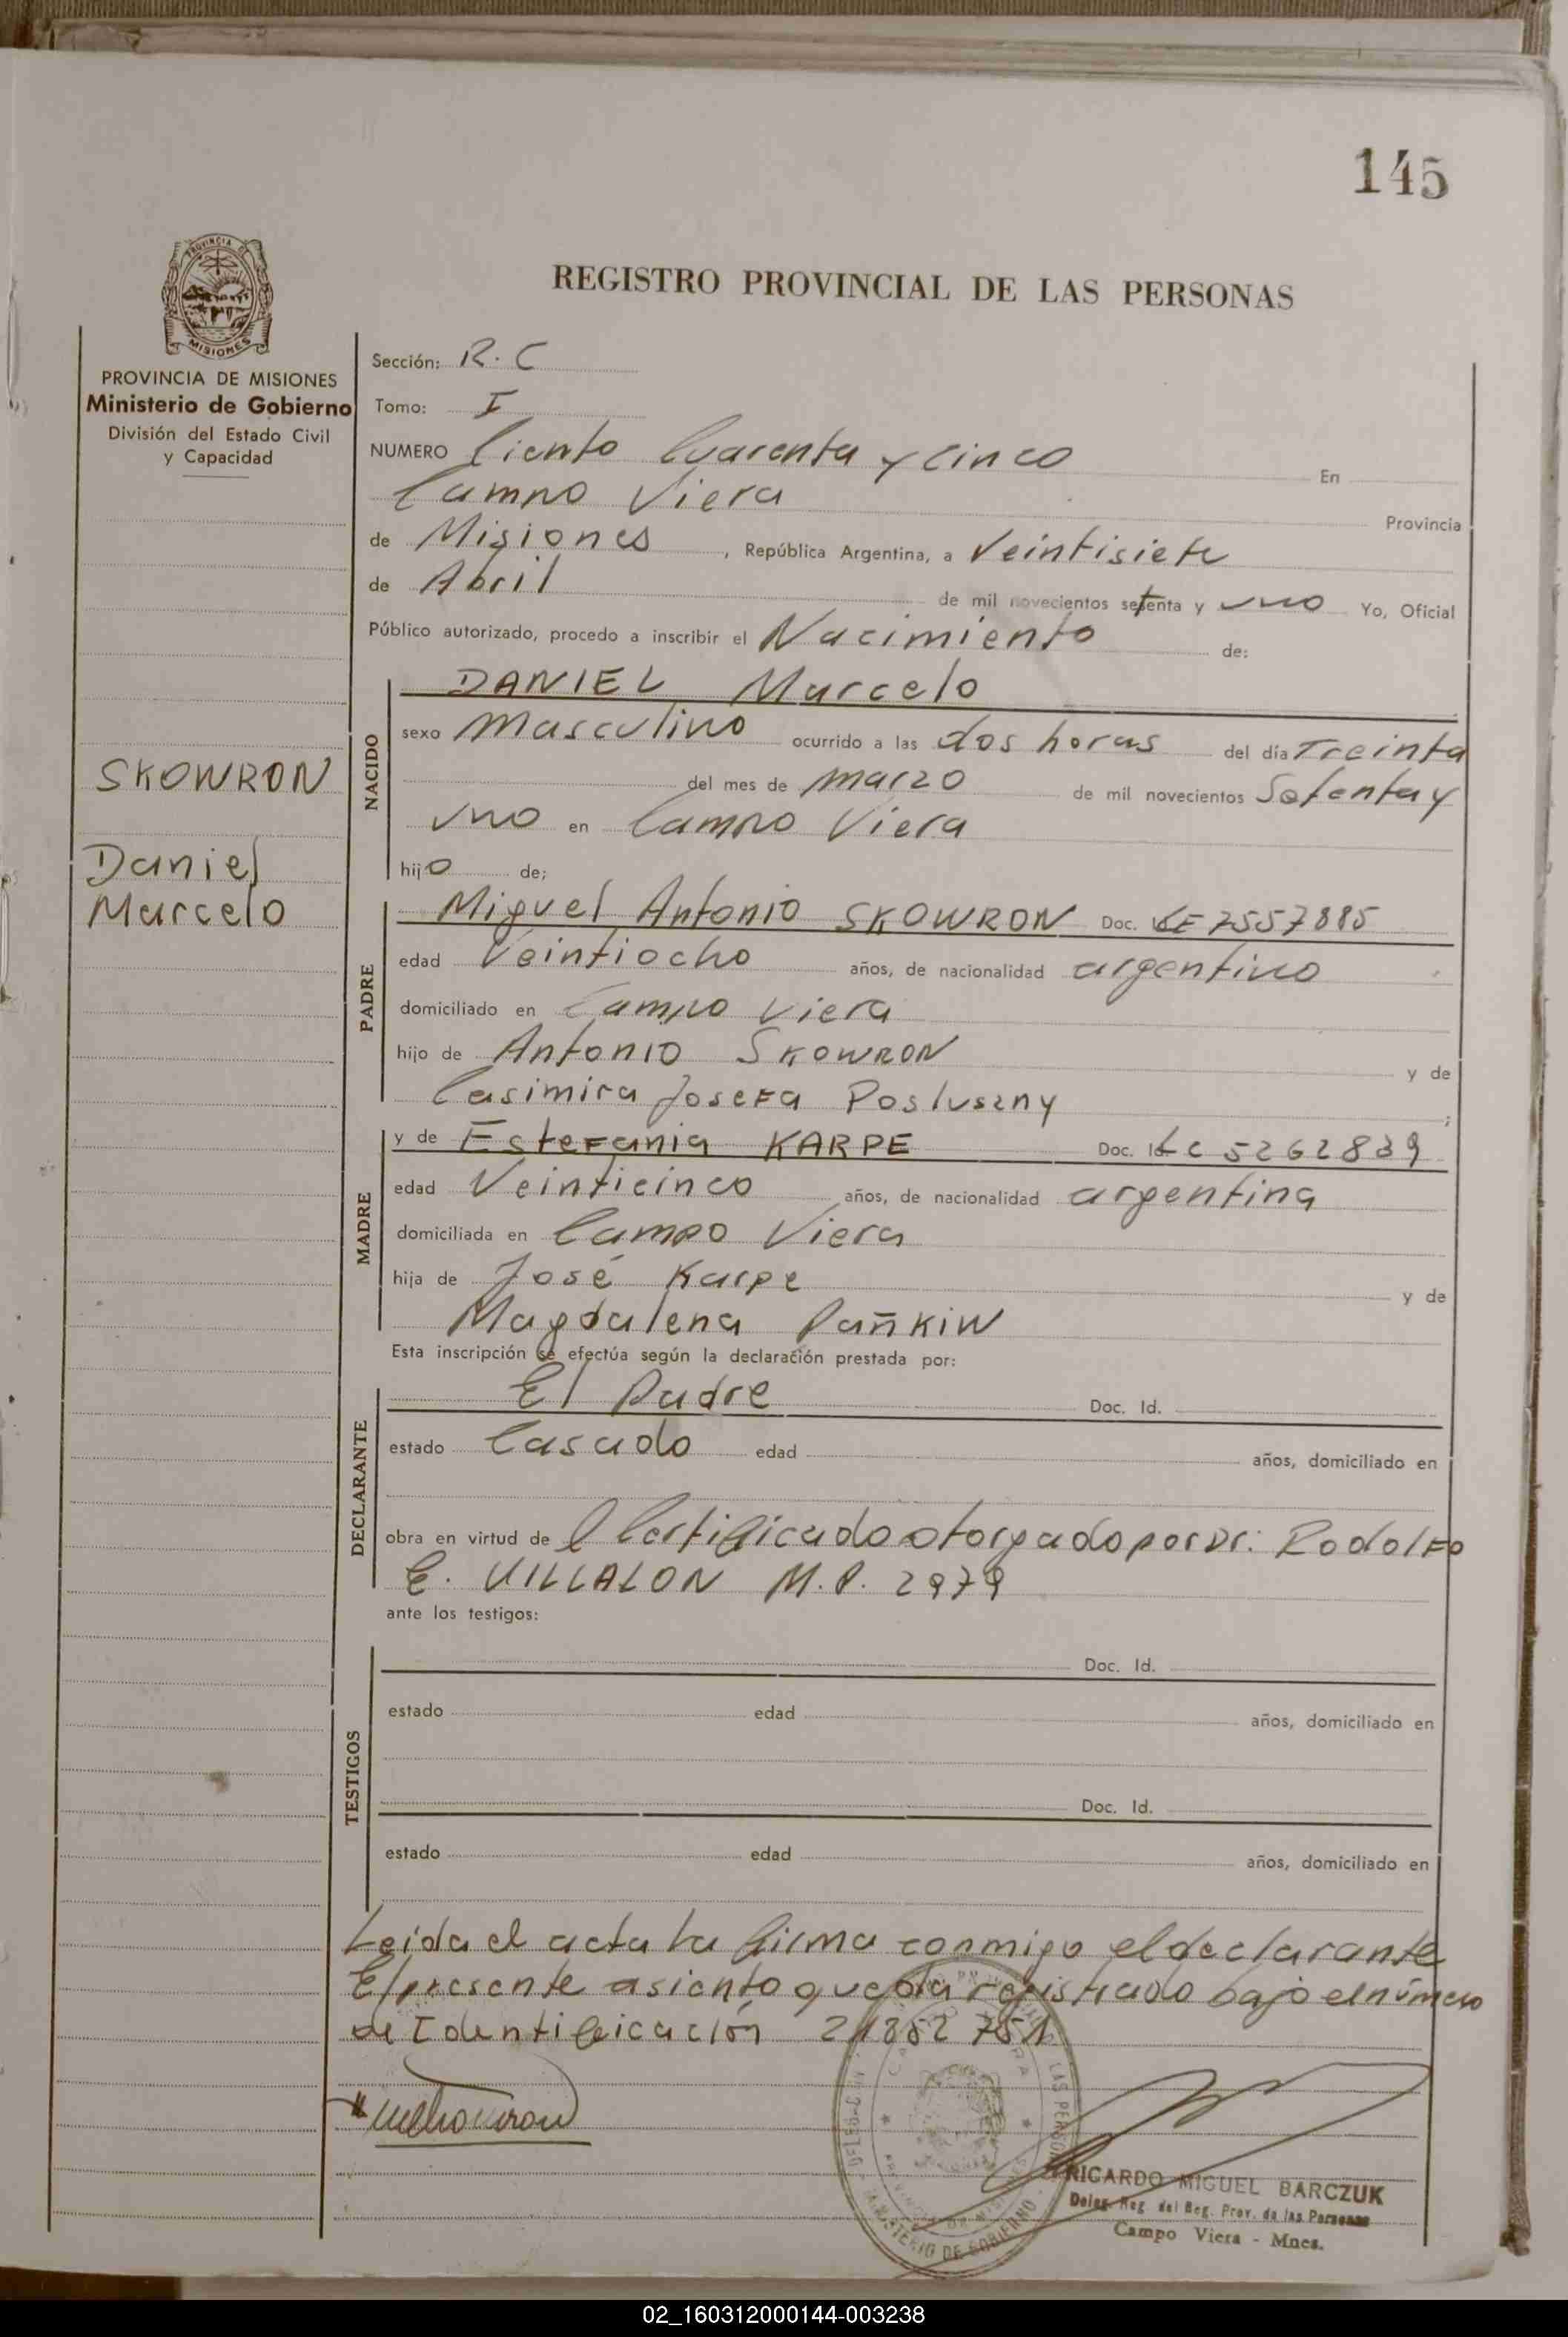 145
REGISTRO PROVINCIAL DE LAS PERSONAS
PROVINCIA DE MISIONES
Ministerio de Gobierno
División del Estado Civil
y Capacidad
SKOWRON
Daniel
Marcelo
Sección: R. C
Tomo: I
NUMERO Ciento Cuarenta y Cinco En
Campo Viera Provincia
de Misiones, República Argentina, a Veintisiete
de Abril de mil novecientos setenta y uno Yo, Oficial
Público autorizado, procedo a inscribir el Nacimiento de:
NACIDO
DANIEL Marcelo
sexo Masculino ocurrido a las dos horas del día Treinta
del mes de marzo de mil novecientos Setenta y
uno en Campo Viera
hijo de;
PADRE
Miguel Antonio SKOWRON Doc. LE 7557885
edad Veintiocho años, de nacionalidad argentino
domiciliado en Campo Viera
hijo de Antonio SKOWRON y de
Casimira Josefa Posluszny;
MADRE
y de Estefania KARPE Doc. Id LC 5262839
edad Veinticinco años, de nacionalidad argentina
domiciliada en Campo Viera
hija de José Karpe y de
Magdalena Pañkiw
Esta inscripción se efectúa según la declaración prestada por:
DECLARANTE
El Padre Doc. Id.
estado Casado edad años, domiciliado en
obra en virtud de l Certificado otorgado por Dr: Rodolfo
E. VILLALON M.P. 2979
ante los testigos:
TESTIGOS
Doc. Id.
estado edad años, domiciliado en
Doc. Id.
estado edad años, domiciliado en
Leida el acta la firma conmigo el declarante
El presente asiento queda registrado bajo el número
de Identificación 21852751
RICARDO MIGUEL BARCZUK
Deleg. Reg. del Reg. Prov. de las Personas
Campo Viera - Mnes.
MINISTERIO DE GOBIERNO
02_160312000144-003238